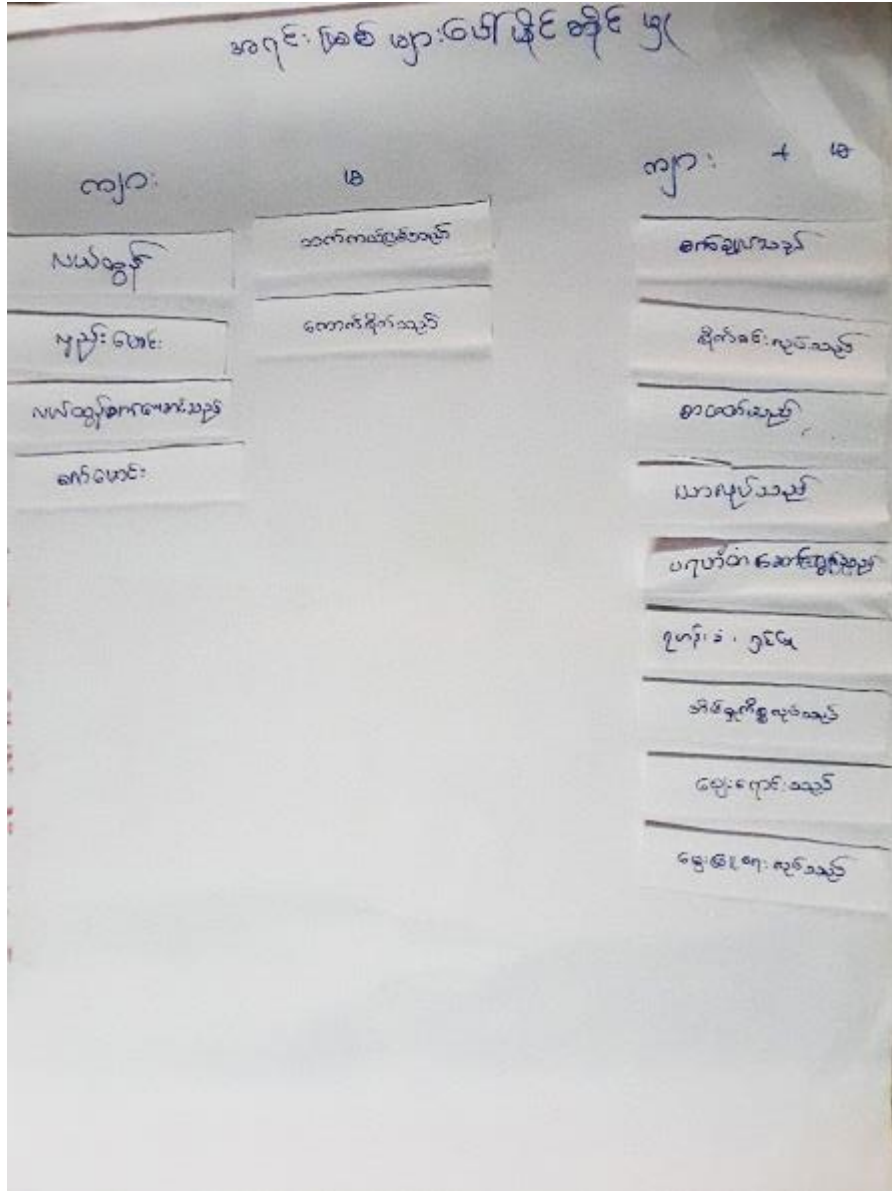 အရင်းမြစ် များပေါ်ပိုင်ဆိုင်မှု
ကျား
မ
ကျား + မ
လယ်ထွန်
လှည်းမောင်း
လယ်ထွန်စက်မောင်းသည်
စက်မောင်း
သက်ကယ်ပြစ်သည်
ကောက်စိုက်သည်
စက်ချုပ်သည်
စိုက်ခင်းလုပ်သည်
စာဖတ်သည်
ယာလုပ်သည်
ပရဟိတဆောင်ရွက်သည်
ရဟန်းခံ၊ ရှင်ပြု
အိမ်မှုကိစ္စလုပ်သည်
ဈေးရောင်းသည်
မွေးမြူရေးလုပ်သည်